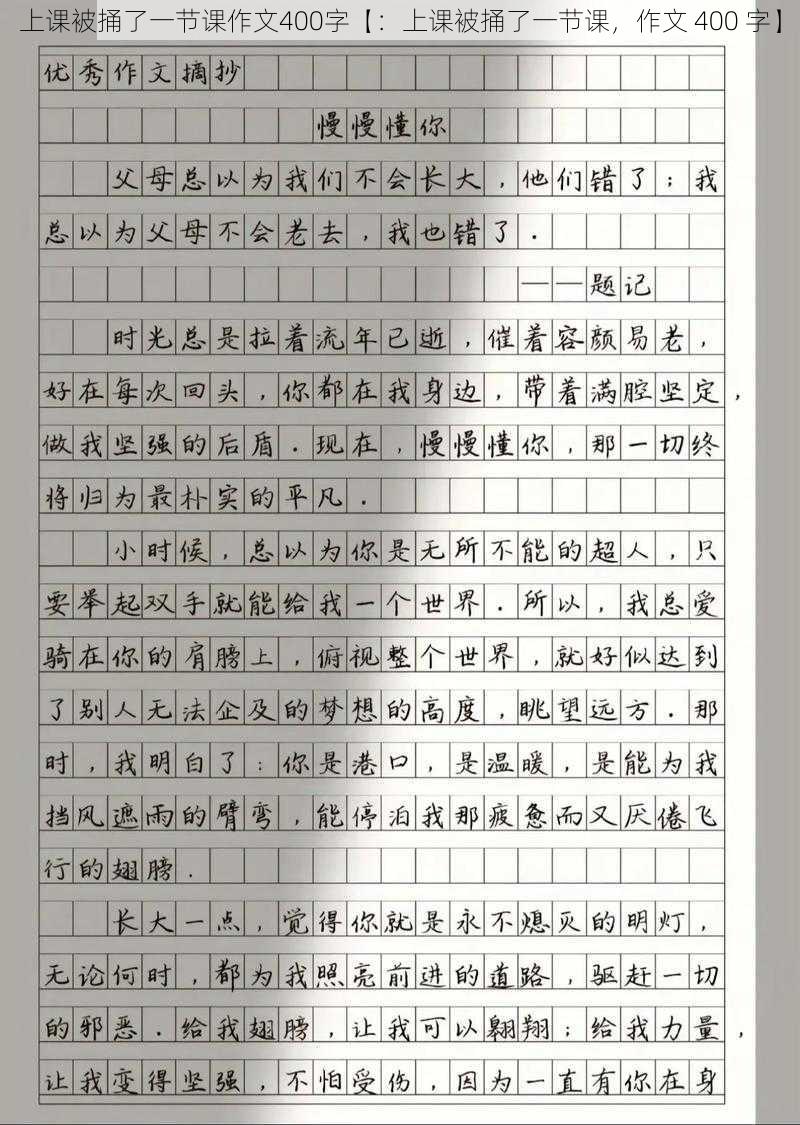 上课被捅了一节课作文400字【：上课被捅了一节课，作文 400 字】
优秀作文摘抄
慢慢懂你
父母总以为我们不会长大，他们错了；我
总以为父母不会老去，我也错了．
——题记
时光总是拉着流年已逝，催着容颜易老，
好在每次回头，你都在我身边，带着满腔坚定，
做我坚强的后盾．现在，慢慢懂你，那一切终
将归为最朴实的平凡．
小时候，总以为你是无所不能的超人，只
要举起双手就能给我一个世界．所以，我总爱
骑在你的肩膀上，俯视整个世界，就好似达到
了别人无法企及的梦想的高度，眺望远方．那
时，我明白了：你是港口，是温暖，是能为我
挡风遮雨的臂弯，能停泊我那疲惫而又厌倦飞
行的翅膀．
长大一点，觉得你就是永不熄灭的明灯，
无论何时，都为我照亮前进的道路，驱赶一切
的邪恶．给我翅膀，让我可以翱翔；给我力量，
让我变得坚强，不怕受伤，因为一直有你在身